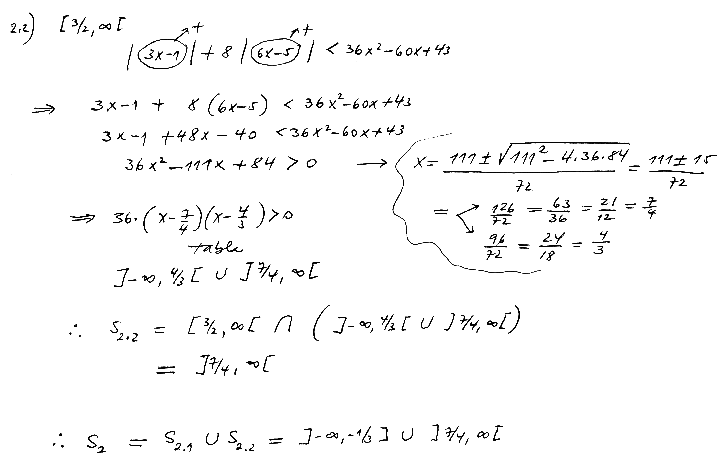 2.2) [3/2, ∞[
+ +
|3x-1| + 8 |6x-5| < 36x²-60x+43
⇒ 3x-1 + 8 (6x-5) < 36x²-60x+43
3x-1 +48x - 40 <36x²-60x+43
36x² -111x + 84 > 0 → x = (111 ± √(111² - 4.36.84))/72 = (111 ± 15)/72
= 126/72 = 63/36 = 21/12 = 7/4
96/72 = 24/18 = 4/3
⇒ 36·(x-7/4)(x-4/3) > 0
table
]-∞, 4/3[ ∪ ]7/4, ∞[
∴ S2.2 = [3/2, ∞[ ∩ (]-∞, 4/3[ ∪ ]7/4, ∞[)
= ]7/4, ∞[
∴ S2 = S2.1 ∪ S2.2 = ]-∞, -1/3] ∪ ]7/4, ∞[